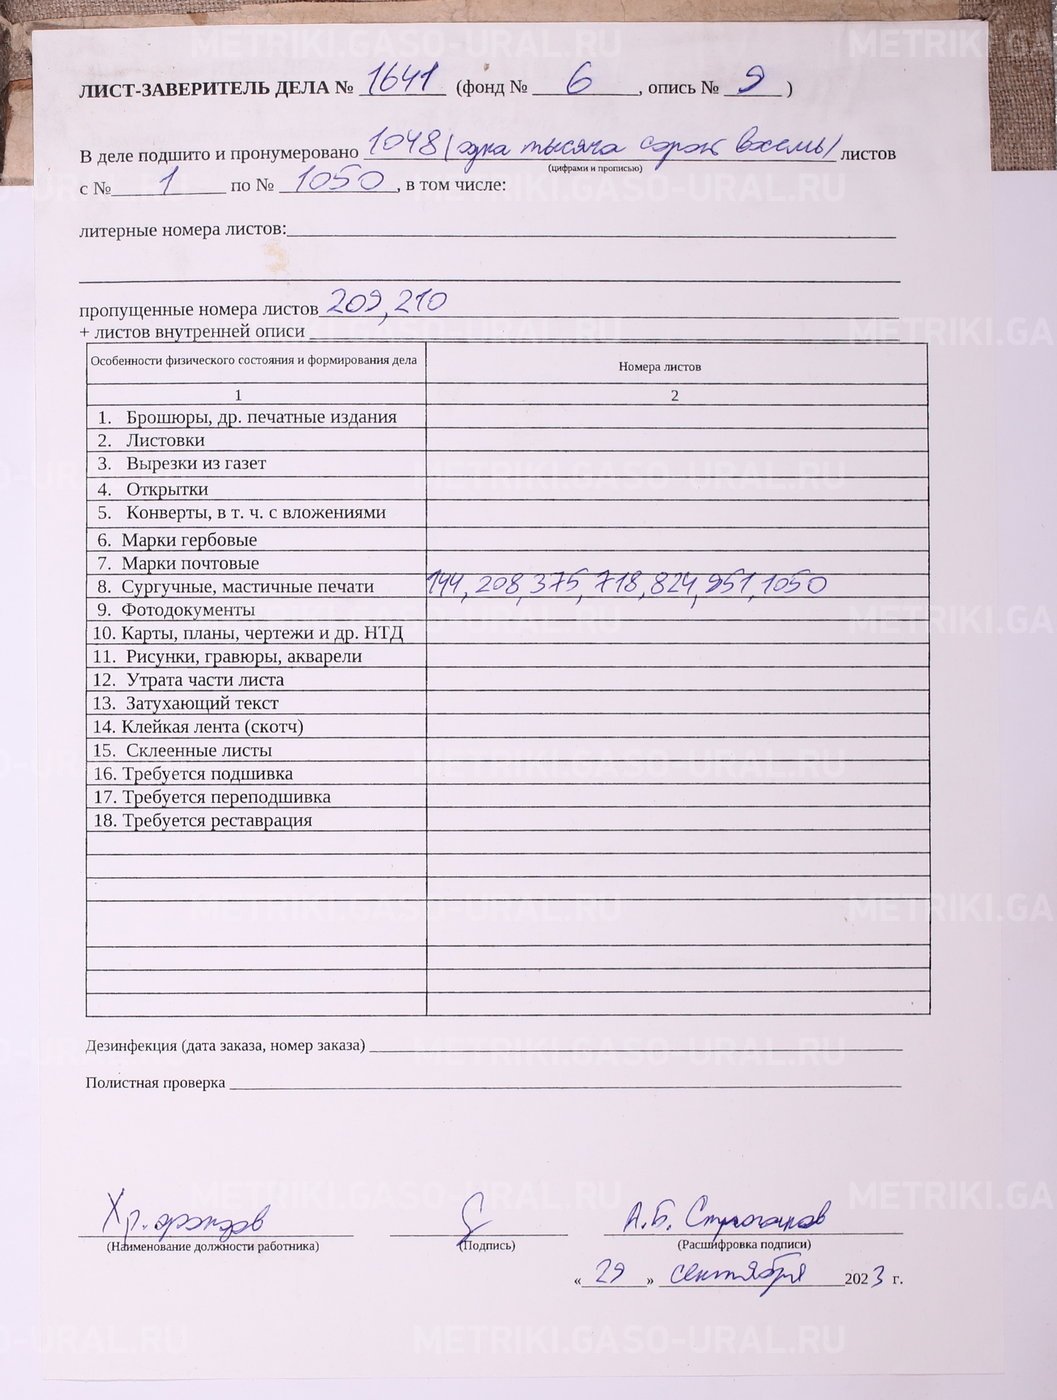 ЛИСТ-ЗАВЕРИТЕЛЬ ДЕЛА № 1641 (фонд № 6, опись № 9)
В деле подшито и пронумеровано 1048 (одна тысяча сорок восемь) листов
(цифрами и прописью)
с № 1 по № 1050, в том числе:
литерные номера листов:
пропущенные номера листов 209, 210
+ листов внутренней описи
Особенности физического состояния и формирования дела Номера листов
1 2
1. Брошюры, др. печатные издания
2. Листовки
3. Вырезки из газет
4. Открытки
5. Конверты, в т. ч. с вложениями
6. Марки гербовые
7. Марки почтовые
8. Сургучные, мастичные печати 144, 208, 375, 718, 824, 951, 1050
9. Фотодокументы
10. Карты, планы, чертежи и др. НТД
11. Рисунки, гравюры, акварели
12. Утрата части листа
13. Затухающий текст
14. Клейкая лента (скотч)
15. Склеенные листы
16. Требуется подшивка
17. Требуется переподшивка
18. Требуется реставрация
Дезинфекция (дата заказа, номер заказа)
Полистная проверка
Хр. фондов А.Б. Строганов
(Наименование должности работника) (Подпись) (Расшифровка подписи)
«29» сентября 2023 г.
METRIKI.GASO-URAL.RU